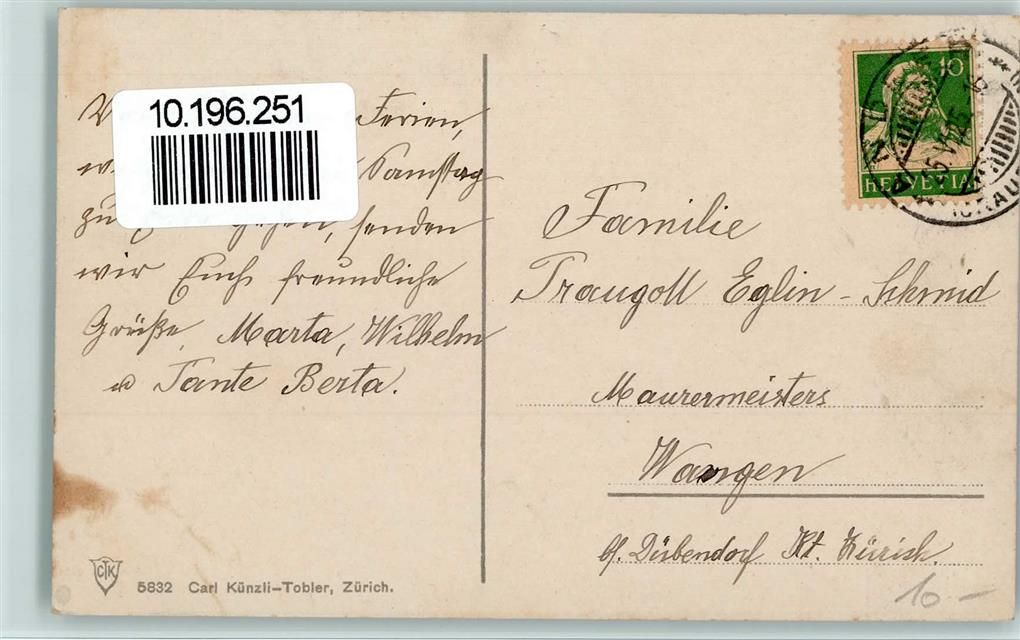 10.196.251
Ferien,
Samstag
zu gehen, senden
wir Euch freundliche
Grüße, Marta, Wilhelm
u Tante Berta.
10
HELVETIA
Familie
Traugott Eglin - Schmid
Maurermeisters
Wangen
bf. Dübendorf Kt. Zürich.
CTK
5832 Carl Künzli-Tobler, Zürich.
10 -